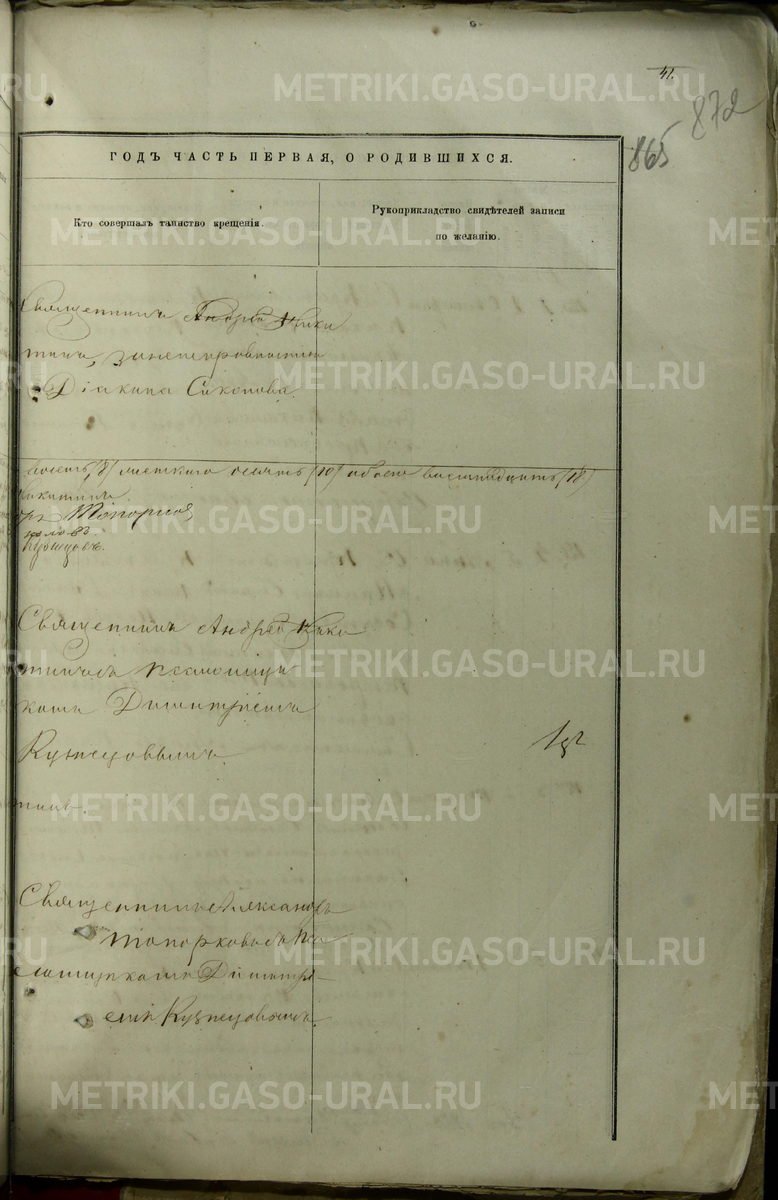 41.
872
865
ГОДЪ ЧАСТЬ ПЕРВАЯ, О РОДИВШИХСЯ.
Кто совершалъ таинство крещенія.
Рукоприкладство свидѣтелей записи
по желанію.
Священникъ Андрей Ники
тинъ,
Діакона
(8) женскаго десять (10) обоего восемнадцать (18)
Никитинъ.
Топорков
Кузнецовъ.
Священникъ Андрей Ники
тинъ съ псаломщи
комъ Димитріемъ
Кузнецовымъ.
Священникъ Александръ
Топорковъ съ Пса
ломщикомъ Димитрі-
емъ Кузнецовымъ.
METRIKI.GASO-URAL.RU